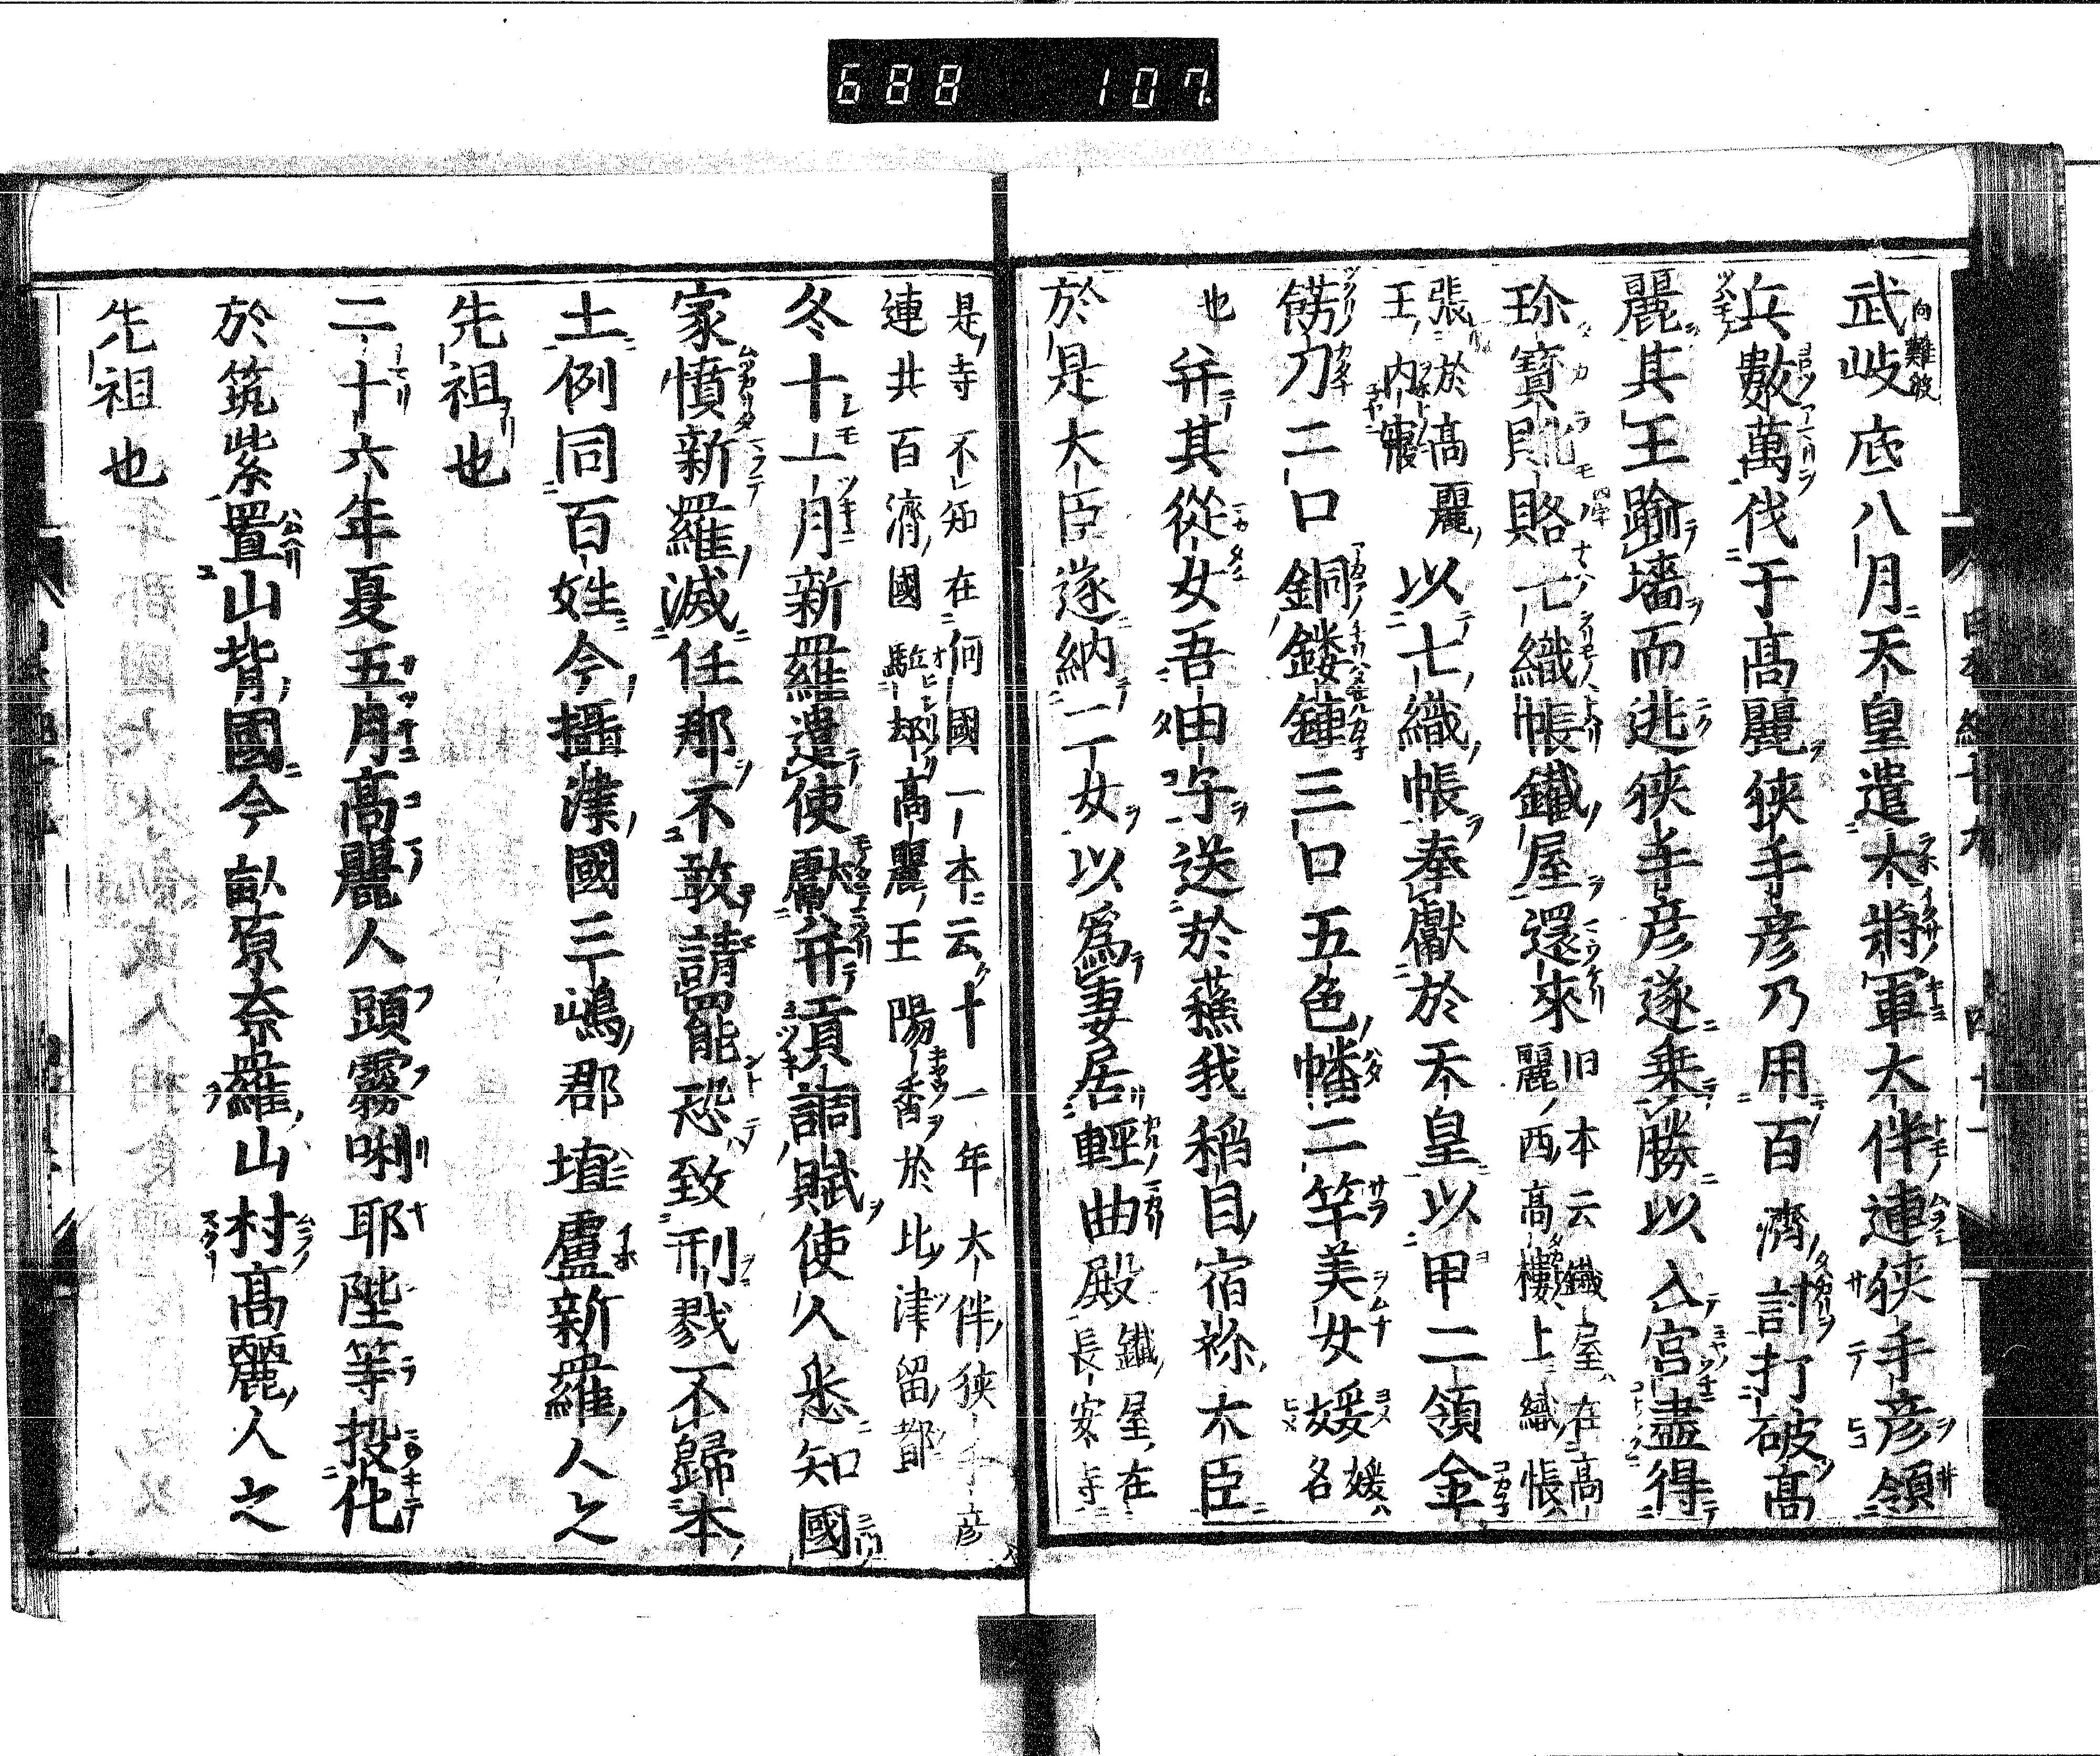 688 107
武岐庇八月天皇遣大將軍大伴連狹手彦領
兵數萬伐于高麗狹手彦乃用百濟計打破高
麗其王踰墻而逃狹手彦遂乗勝以入宮盡得
珍寶貨賂七織帳鐵屋還來旧本云鐵屋在高
麗西高樓上織帳
張於高麗
王内寢以七織帳奉獻於天皇以甲二領金
餝刀二口銅鏤鍾三口五色幡二竿美女媛媛
名
也并其從女吾田子送於蘇我稻目宿祢大臣
於是大臣遂納二女以爲妻居輕曲殿鐵屋在
長安寺
是寺不知在何國一本云十一年大伴狹手彦
連共百濟國駈却高麗王陽香於比津留都
冬十一月新羅遣使獻并貢調賦使人悉知國
家憤新羅滅任那不敢請罷恐致刑戮不歸本
土例同百姓今攝津國三嶋郡埴廬新羅人之
先祖也
二十六年夏五月高麗人頭霧唎耶陛等投化
於筑紫置山背國今畝原奈羅山村高麗人之
先祖也